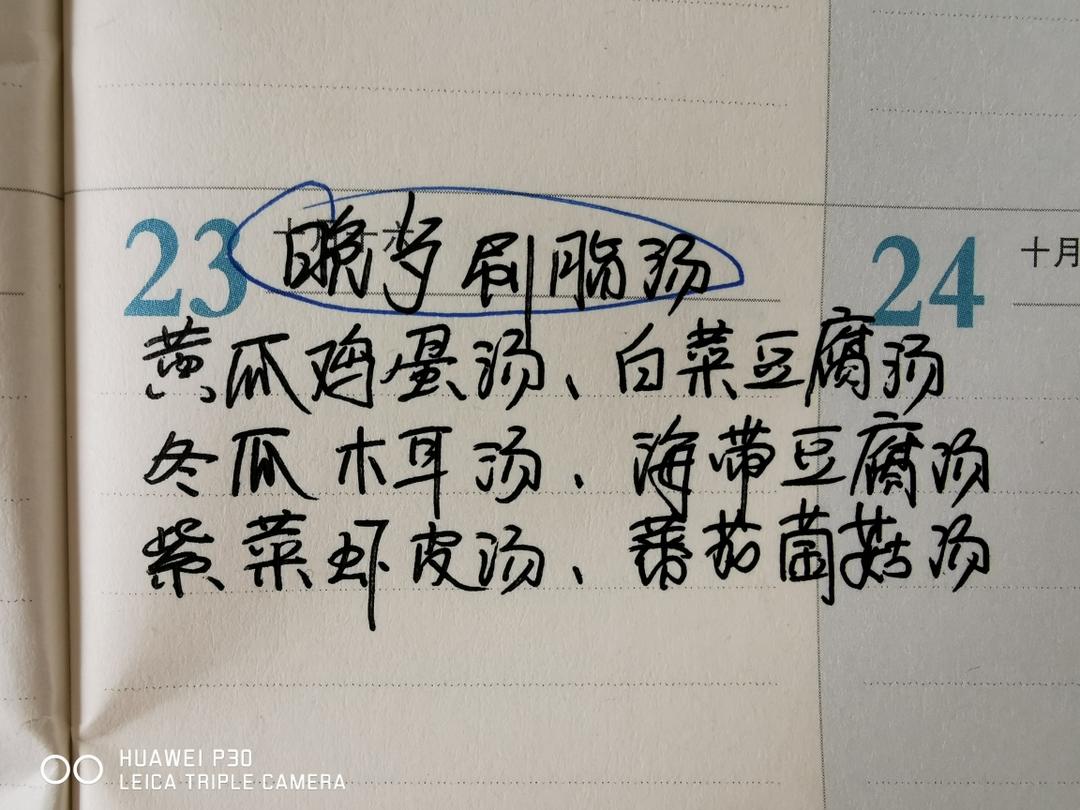 23 晚岁刷脂汤 24 十月
黄瓜鸡蛋汤、白菜豆腐汤
冬瓜木耳汤、海带豆腐汤
紫菜虾皮汤、蕃茄菌菇汤
HUAWEI P30
LEICA TRIPLE CAMERA